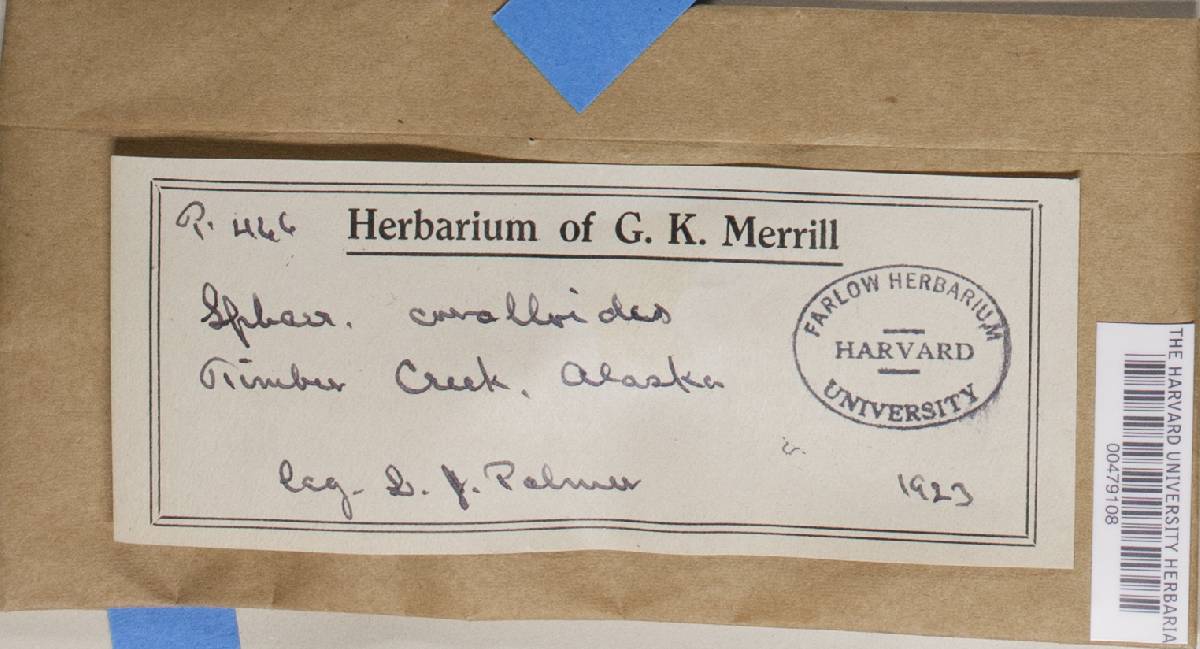 P. 466
Herbarium of G. K. Merrill
Sphaer. coralloides
Timber Creek, Alaska
FARLOW HERBARIUM
HARVARD
UNIVERSITY
Leg. L. J. Palmer
1923
THE HARVARD UNIVERSITY HERBARIA
00479108